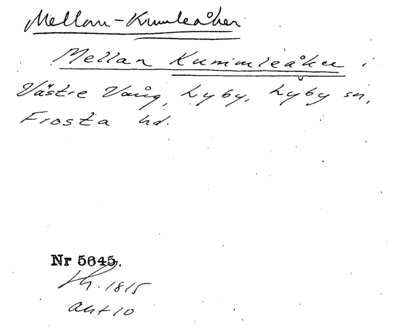 Mellan-Kumleåker
Mellan Kummleåker i
Västre Vång, Lyby, Lyby sn,
Frosta hd.
Nr 5645.
Lh. 1815
akt 10